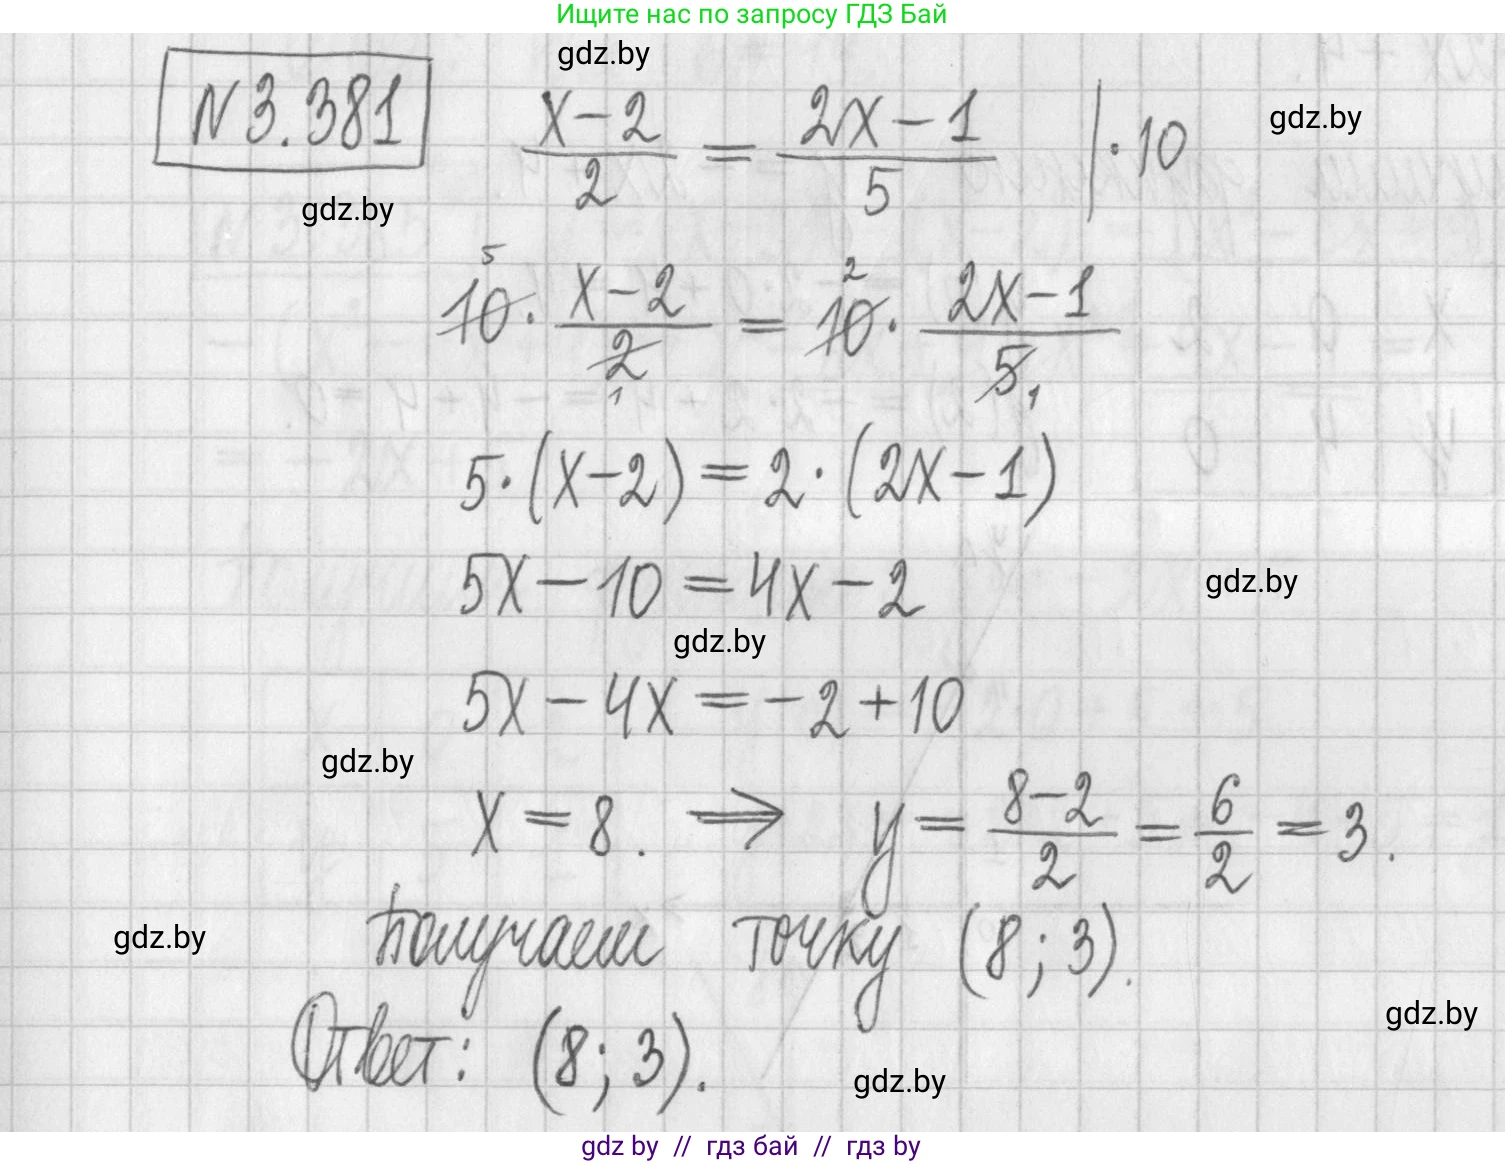 Ищите нас по запросу ГДЗ Бай
gdz.by
N 3.381 (x-2)/2 = (2x-1)/5 | · 10
gdz.by
gdz.by
10^5 · (x-2)/2_1 = 10^2 · (2x-1)/5_1
5·(x-2) = 2·(2x-1)
5x-10 = 4x-2
gdz.by
gdz.by
5x-4x = -2+10
gdz.by
x = 8. ⇒ y = (8-2)/2 = 6/2 = 3.
Получаем точку (8; 3).
gdz.by
gdz.by
Ответ: (8; 3).
gdz.by
gdz by // гдз бай // гдз by